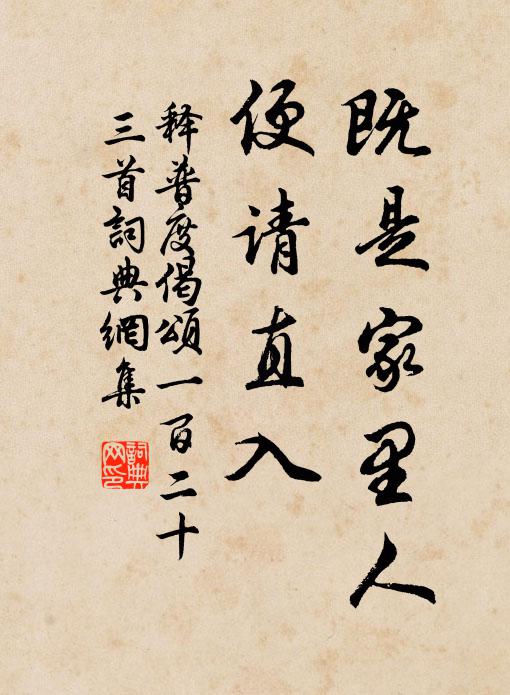 既是家里人
便请直入
释普度偈頌一百二十
三首詞典網集
詞典网印